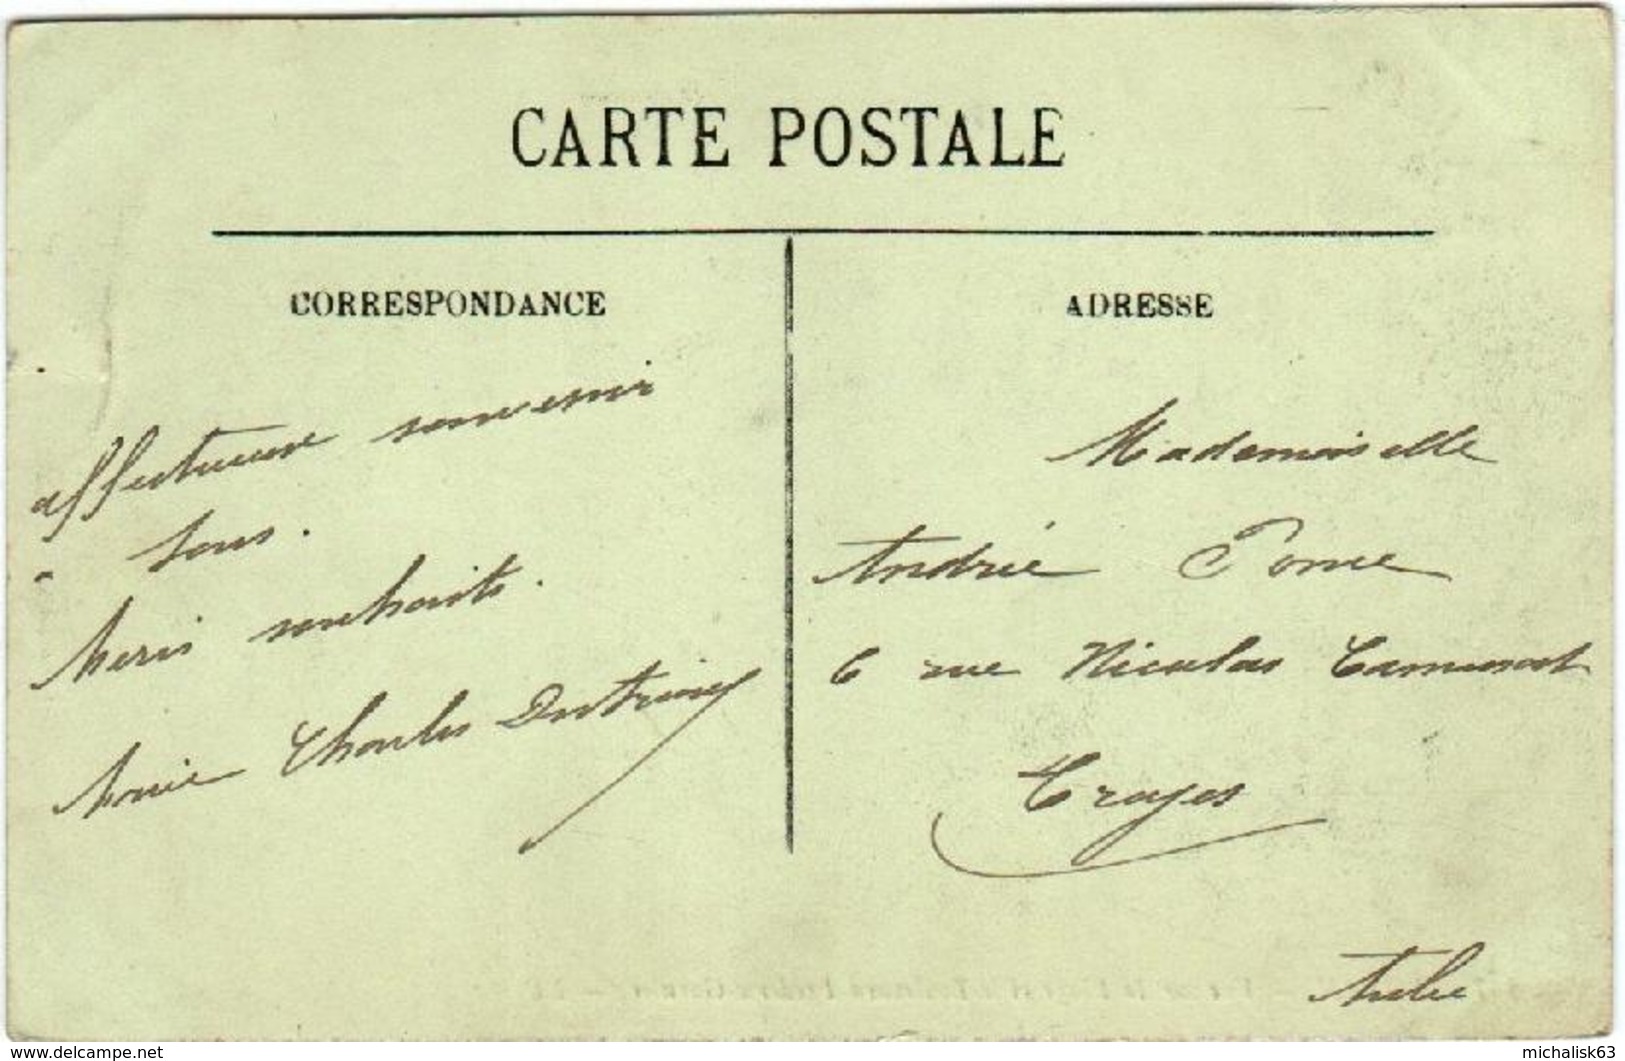 CARTE POSTALE
CORRESPONDANCE
affectueux souvenir
à tous.
Merci souhaits.
Marie Charles
ADRESSE
Mademoiselle
Andrée
6 rue Nicolas Camusat
Troyes
Aube
www.delcampe.net
michalisk63